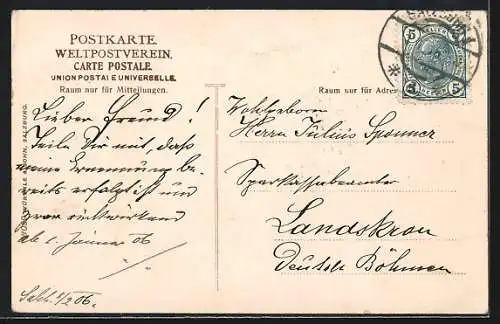 POSTKARTE
WELTPOSTVEREIN.
CARTE POSTALE.
UNION POSTALE UNIVERSELLE.
Raum nur für Mitteilungen.
Lieber Freund!
Teile Dir mit, daß
meine Ernennung be-
reits erfolgt ist und
zwar rückwirkend
ab 1. Jänner 06
Salzb. 1/2 06.
SALZBURG
5 5
5 5
Raum nur für Adre
Wohlgeboren
Herrn Julius
Sparkassabeamter
Landskron
Deutsch Böhmen
WÜRTHLE & SOHN, SALZBURG.